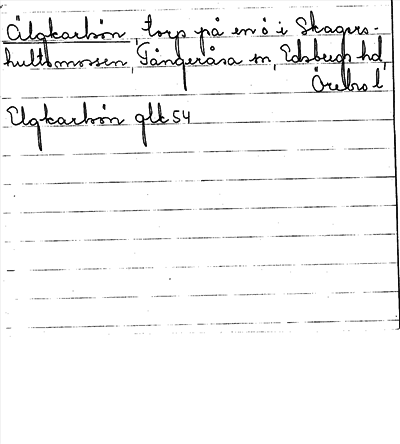 Älgkarhön, torp på en ö i Skagers-
hultsmossen, Tångeråsa sn, Edsbergs hd,
Örebro l
Elgkarhön glk 54